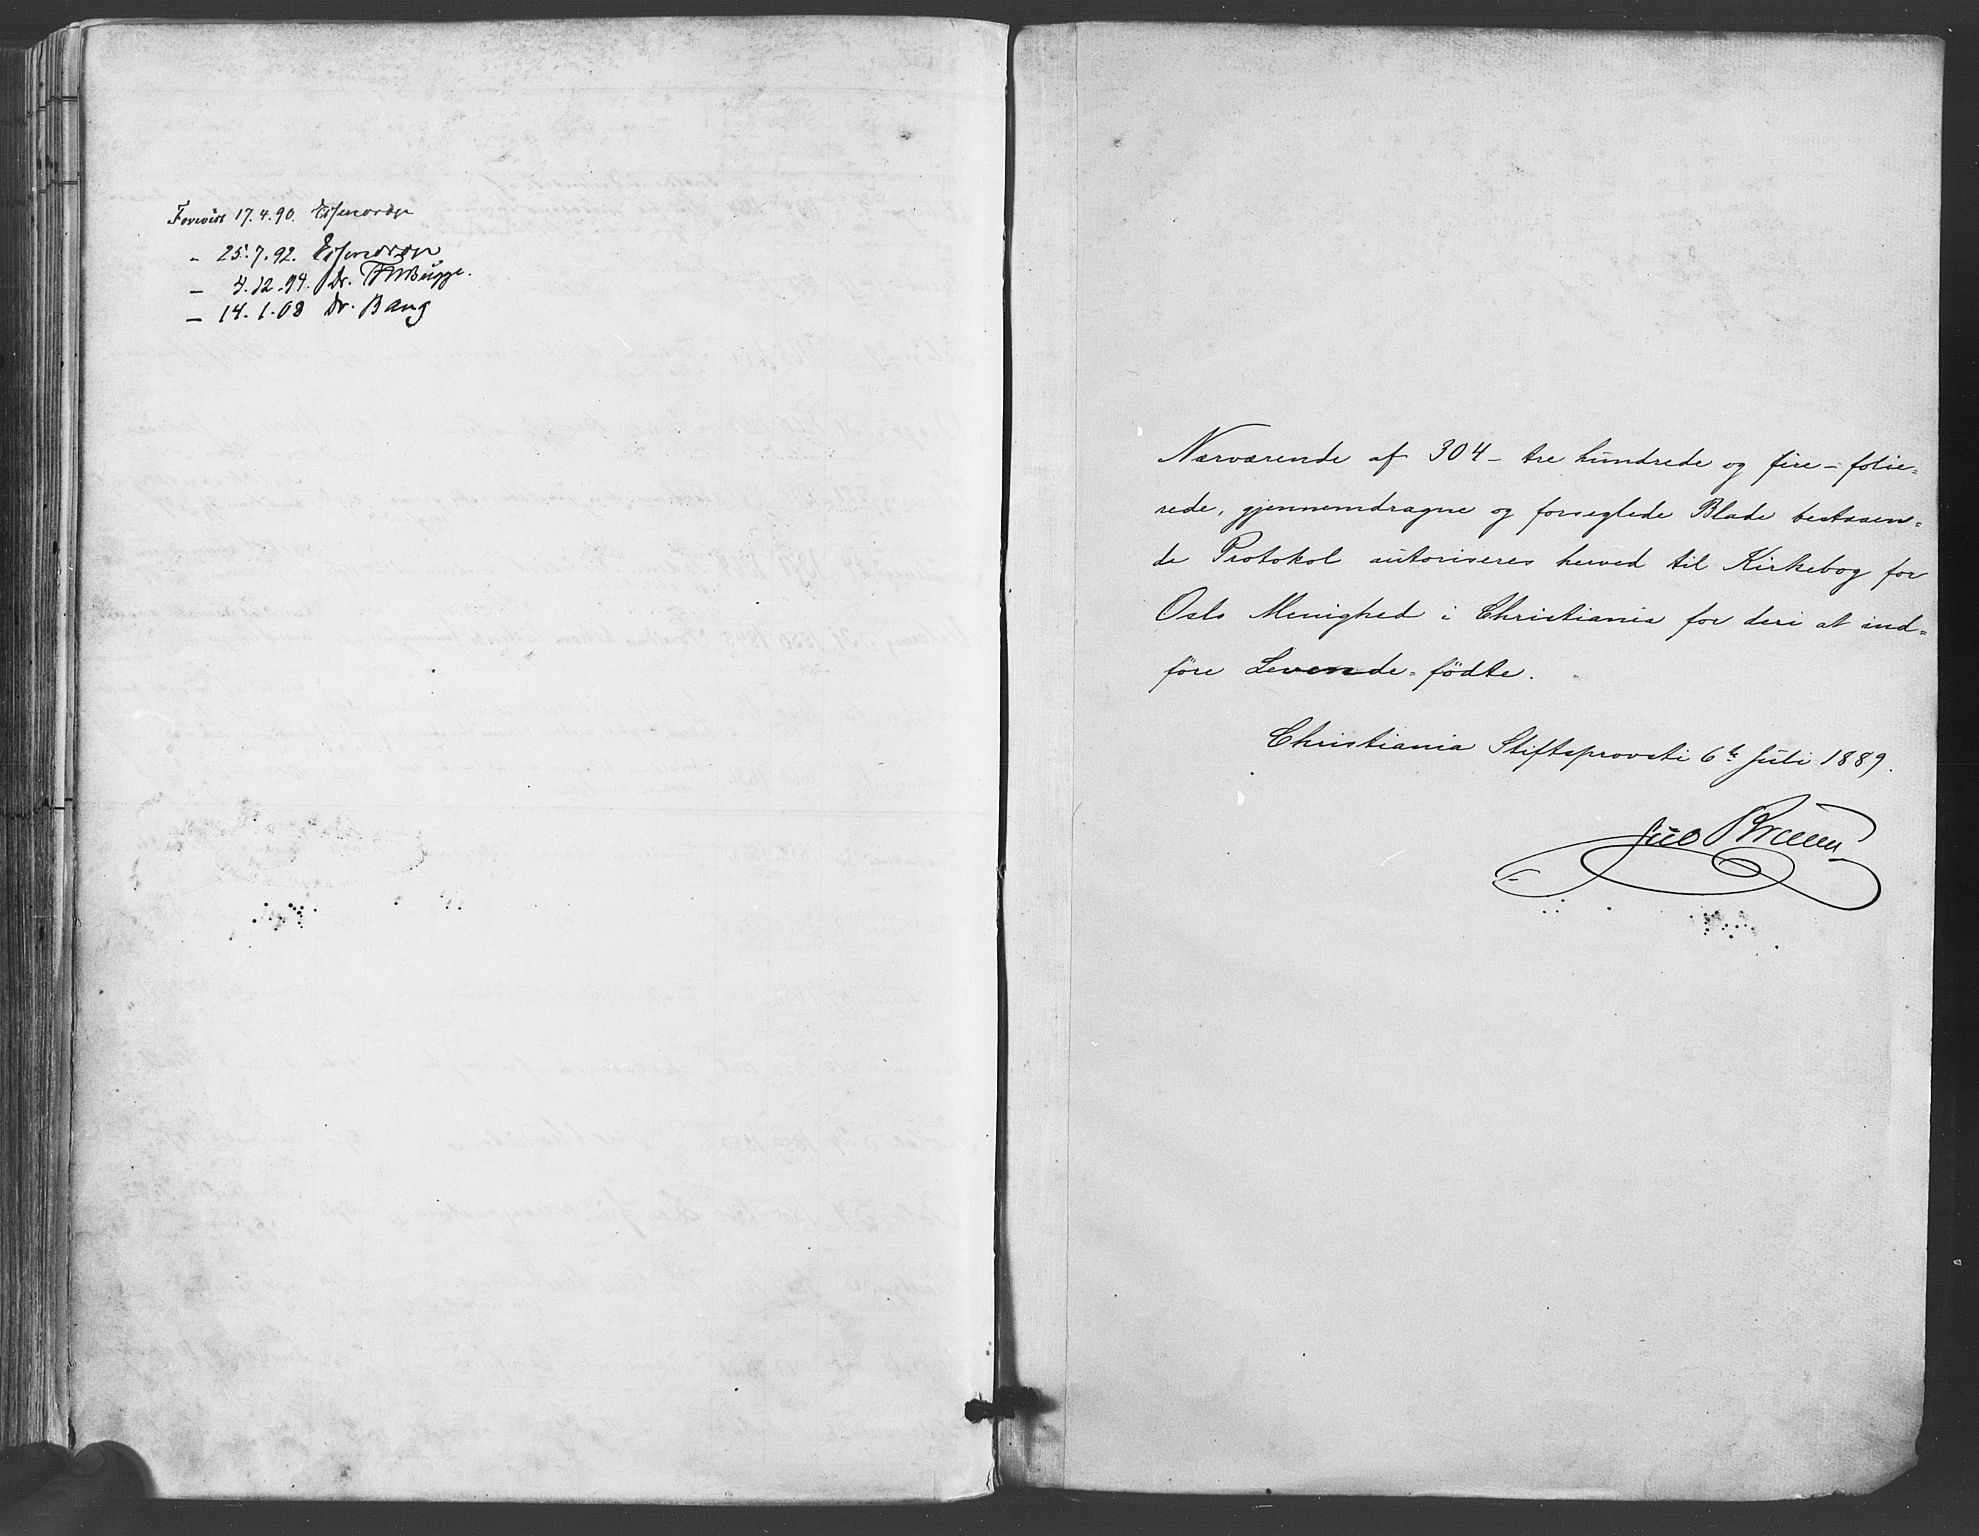 Forevist 17.4.90. Essendrop
- 25.7.92. Essendrop
- 4.12.94. Dr. FWBugge.
- 14.1.08 Dr. Bang
Nærværende af 304 - tre hundrede og fire - folie=
rede, gjennemdragne og forseglede Blade bestaaen=
de Protokol autoriseres herved til Kirkebog for
Oslo Menighed i Christiania for deri at ind=
føre Levende-födte.
Christiania Stiftsprovsti 6te Juli 1889.